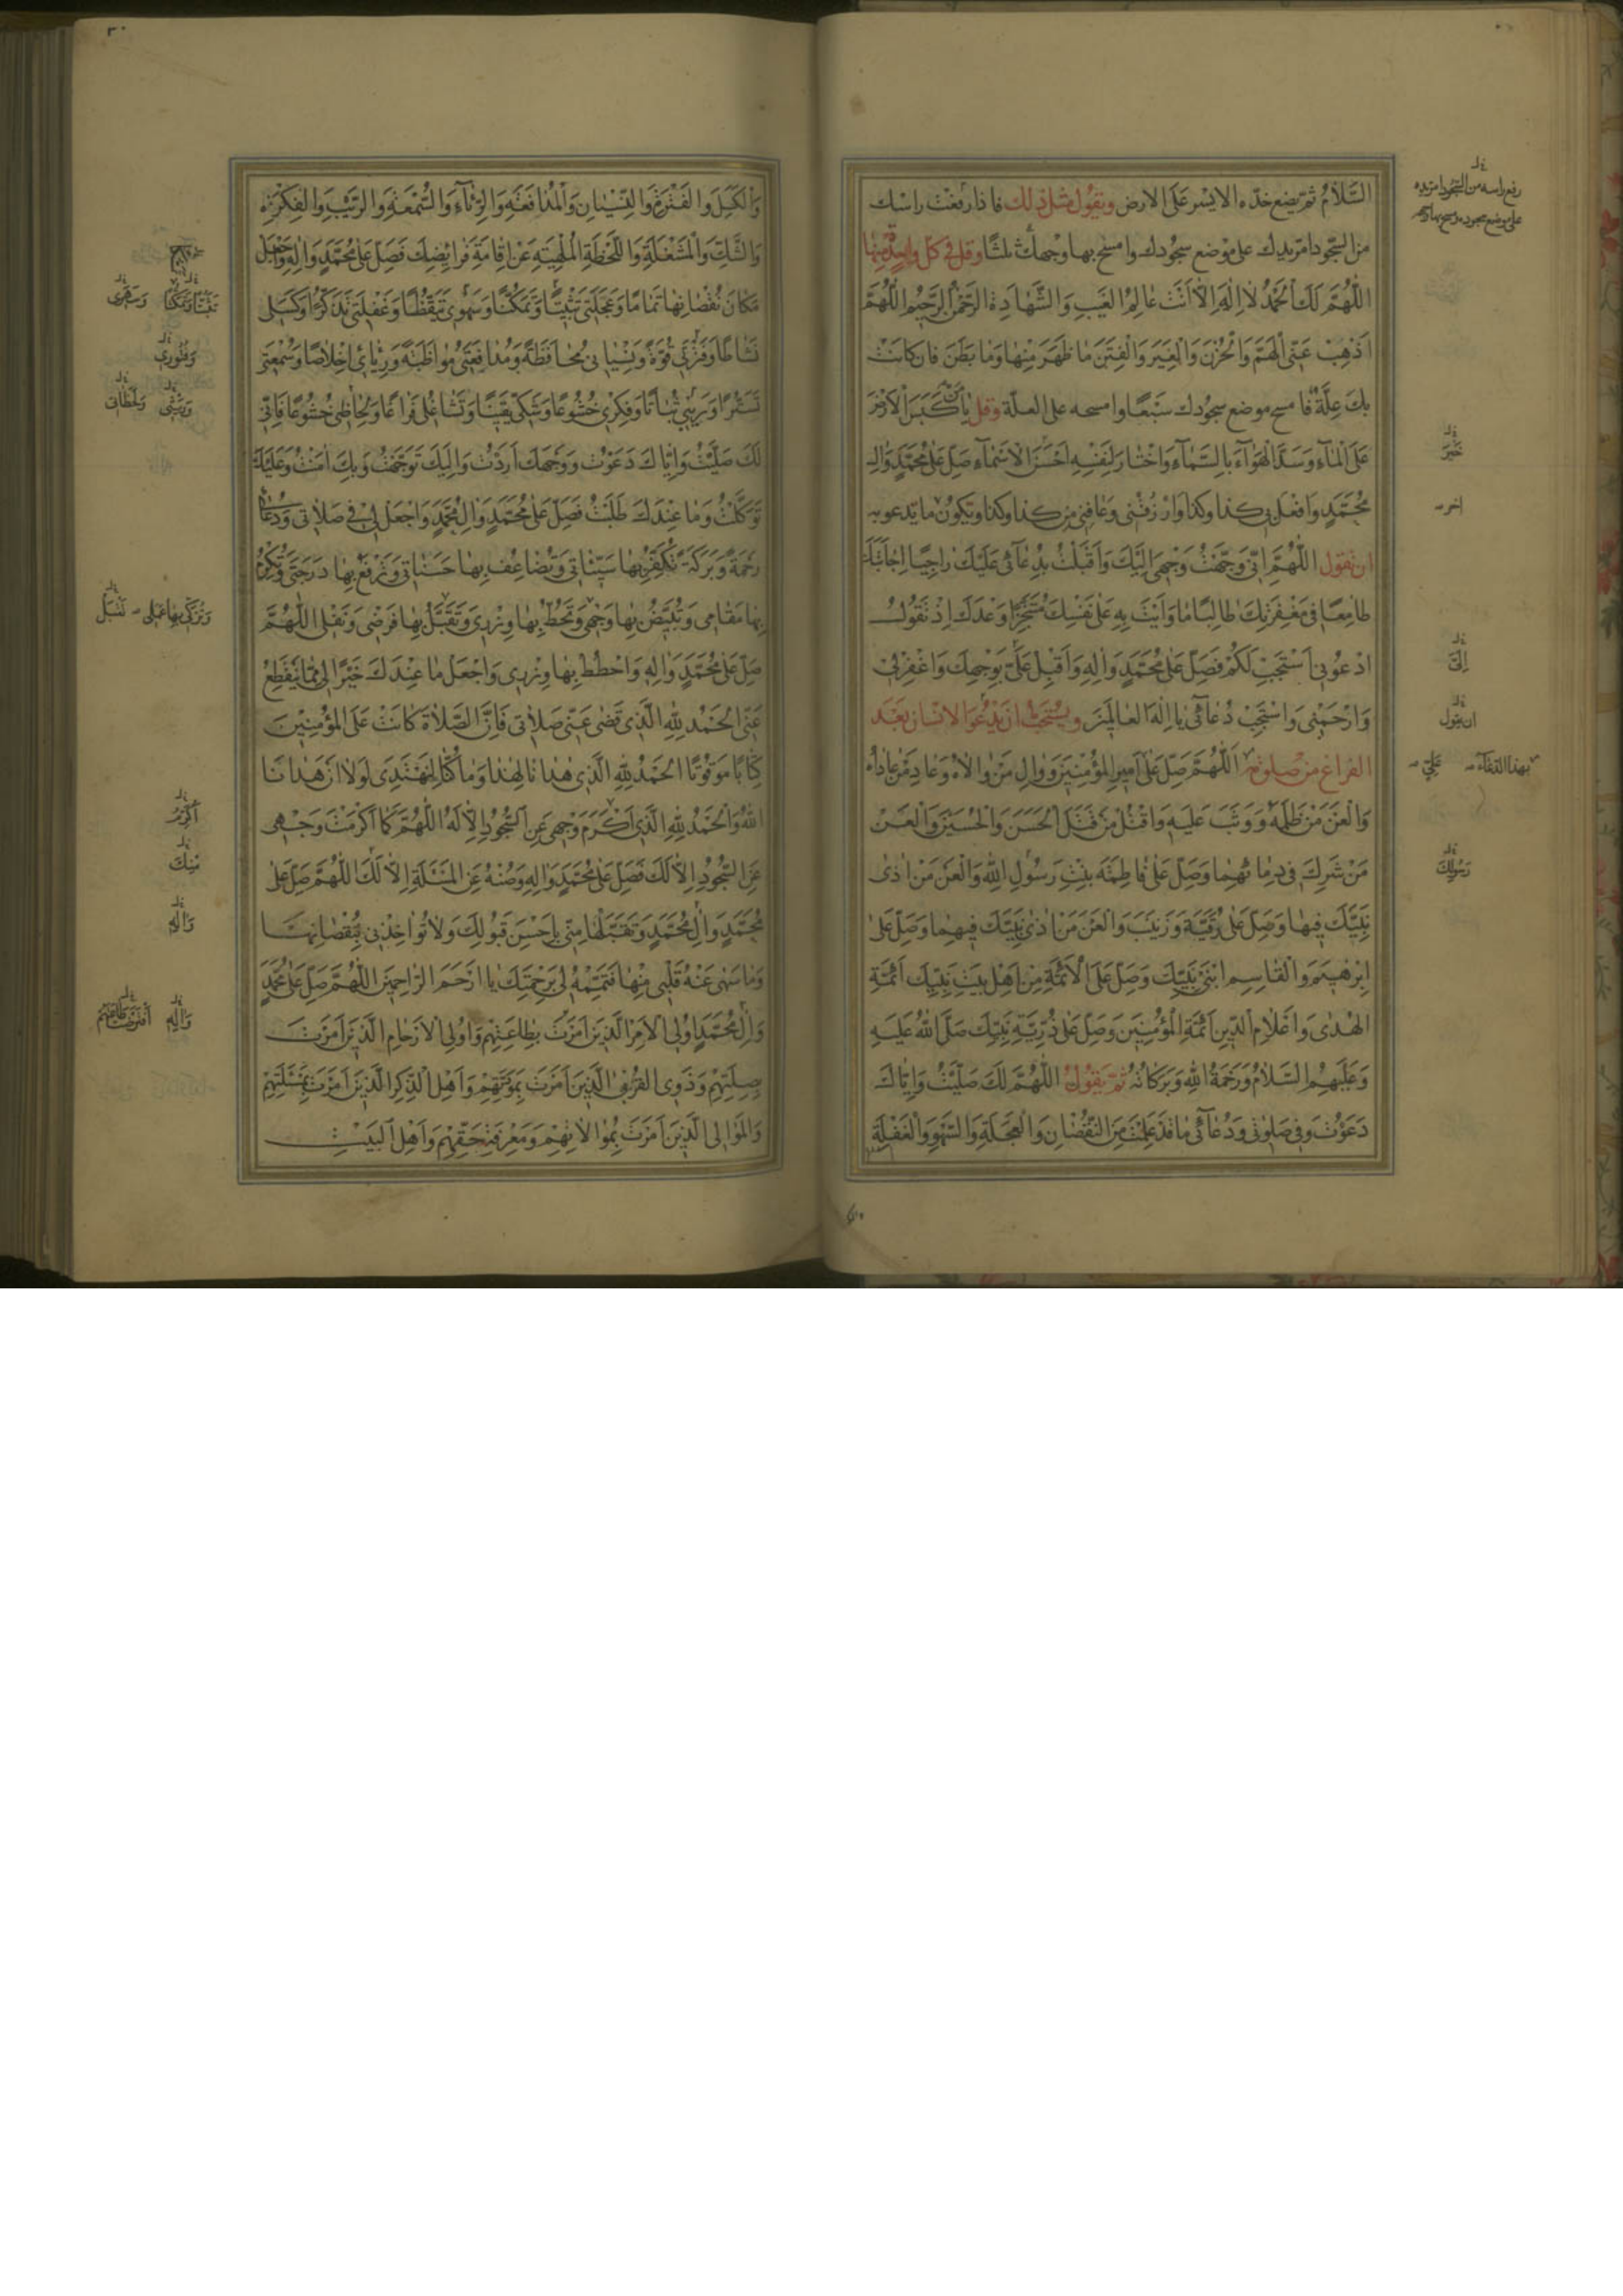 السَّلَامُ ثم يضع خدّه الايسر عَلَى الارض ويقول مثل ذلك فاذا رفعت راسك
من السّجود امرّ يدك على موضع سجودك وامسح بها وجهك ثلثًا وقل في كل واحدة منها
اللّٰهُمَّ لَكَ الحَمْدُ لَا اِلٰهَ اِلَّا اَنْتَ عَالِمُ الغَيْبِ وَالشَّهَادَةِ الرَّحْمٰنُ الرَّحِيْمُ اللّٰهُمَّ
اَذْهِبْ عَنِّي الهَمَّ وَالحُزْنَ وَالغِيَرَ وَالفِتَنَ مَا ظَهَرَ مِنْهَا وَمَا بَطَنَ فان كانت
بك عِلّة فامسح موضع سجودك سَبْعًا وامسحه على العلّة وقل يَا مَنْ كَبَسَ الاَرْضَ
عَلَى المَآءِ وَسَدَّ الهَوَآءَ بِالسَّمَآءِ وَاخْتَارَ لِنَفْسِهِ اَحْسَنَ الاَسْمَآءِ صَلِّ عَلَى مُحَمَّدٍ وَالِ
مُحَمَّدٍ وَافْعَلْ بِي كذا وكذا وَارْزُقْنِي وَعَافِنِي مِن كذا وكذا ويكون ما يدعو به
ان تقول اللّٰهُمَّ اِنِّي وَجَّهْتُ وَجْهِي اِلَيْكَ وَاَقْبَلْتُ بِدُعَآئِي عَلَيْكَ رَاجِيًا اِجَابَتَكَ
طَامِعًا فِي مَغْفِرَتِكَ طَالِبًا مَا وَاَيْتَ بِهِ عَلَى نَفْسِكَ مُتَنَجِّزًا وَعْدَكَ اِذْ تَقُولُ
ادْعُونِي اَسْتَجِبْ لَكُمْ فَصَلِّ عَلَى مُحَمَّدٍ وَاٰلِهِ وَاَقْبِلْ عَلَيَّ بِوَجْهِكَ وَاغْفِرْ لِي
وَارْحَمْنِي وَاسْتَجِبْ دُعَآئِي يَا اِلٰهَ العَالَمِينَ ويستحب ان يدعو الانسان بعد
الفراغ من صلوته اَللّٰهُمَّ صَلِّ عَلَى اَمِيرِ المُؤْمِنِينَ وَوَالِ مَنْ وَالَاهُ وَعَادِ مَنْ عَادَاهُ
وَالْعَنْ مَنْ ظَلَمَهُ وَوَثَبَ عَلَيْهِ وَاقْتُلْ مَنْ قَتَلَ الحَسَنَ وَالحُسَيْنَ وَالْعَنْ
مَنْ شَرِكَ فِي دِمَائِهِمَا وَصَلِّ عَلَى فَاطِمَةَ بِنْتِ رَسُولِ اللّٰهِ وَالْعَنْ مَنْ اٰذَى
نَبِيَّكَ فِيهَا وَصَلِّ عَلَى رُقَيَّةَ وَزَيْنَبَ وَالْعَنْ مَنْ اٰذَى نَبِيَّكَ فِيهِمَا وَصَلِّ عَلَى
اِبْرٰهِيمَ وَالقَاسِمِ ابْنَيْ نَبِيِّكَ وَصَلِّ عَلَى الاَئِمَّةِ مِنْ اَهْلِ بَيْتِ نَبِيِّكَ اَئِمَّةِ
الهُدٰى وَاَعْلَامِ الدِّينِ اَئِمَّةِ المُؤْمِنِينَ وَصَلِّ عَلَى ذُرِّيَّةِ نَبِيِّكَ صَلَّى اللّٰهُ عَلَيْهِ
وَعَلَيْهِمُ السَّلَامُ وَرَحْمَةُ اللّٰهِ وَبَرَكَاتُهُ ثم يقول اللّٰهُمَّ لَكَ صَلَّيْتُ وَاِيَّاكَ
دَعَوْتُ وَفِي صَلٰوتِي وَدُعَآئِي مَا قَدْ عَلِمْتَ مِنَ النُّقْصَانِ وَالعَجَلَةِ وَالسَّهْوِ وَالغَفْلَةِ
رفع راسه من السجود امرّ يده
على موضع سجوده ومسح بها وجهه
خَيْرَ
اخر
اِلَيَّ
ان يقول
بهذا الدعاء
عَلِيّ
رَسُولِكَ
وَالكَسَلِ وَالفَتْرَةِ وَالنِّسْيَانِ وَالمُدَافَعَةِ وَالرِّئَآءِ وَالسُّمْعَةِ وَالرَّيْبِ وَالفِكْرَةِ
وَالشَّكِّ وَالمَشْغَلَةِ وَاللَّحْظَةِ المُلْهِيَةِ عَنْ اِقَامَةِ فَرَايِضِكَ فَصَلِّ عَلَى مُحَمَّدٍ وَاٰلِهِ وَاجْعَلْ
مَكَانَ نُقْصَانِهَا تَمَامًا وَعَجَلَتِي تَثْبِيتًا وَتَمَكُّنًا وَسَهْوِي تَيَقُّظًا وَغَفْلَتِي تَذَكُّرًا وَكَسَلِي
نَشَاطًا وَفَتْرَتِي قُوَّةً وَنِسْيَانِي مُحَافَظَةً وَمُدَافَعَتِي مُوَاظَبَةً وَرِيَائِي اِخْلَاصًا وَسُمْعَتِي
تَسَتُّرًا وَرَيْبِي ثَبَاتًا وَفِكْرِي خُشُوعًا وَشَكِّي يَقِينًا وَتَشَاغُلِي فَرَاغًا وَلِحَاظِي خُشُوعًا فَاِنِّي
لَكَ صَلَّيْتُ وَاِيَّاكَ دَعَوْتُ وَوَجْهَكَ اَرَدْتُ وَاِلَيْكَ تَوَجَّهْتُ وَبِكَ اٰمَنْتُ وَعَلَيْكَ
تَوَكَّلْتُ وَمَا عِنْدَكَ طَلَبْتُ فَصَلِّ عَلَى مُحَمَّدٍ وَاٰلِ مُحَمَّدٍ وَاجْعَلْ لِي فِي صَلَاتِي وَدُعَائِي
رَحْمَةً وَبَرَكَةً تُكَفِّرُ بِهَا سَيِّئَاتِي وَتُضَاعِفُ بِهَا حَسَنَاتِي وَتَرْفَعُ بِهَا دَرَجَتِي وَتُكْرِمُ
بِهَا مَقَامِي وَتُبَيِّضُ بِهَا وَجْهِي وَتَحُطُّ بِهَا وِزْرِي وَتَقَبَّلُ بِهَا فَرْضِي وَنَفْلِي اللّٰهُمَّ
صَلِّ عَلَى مُحَمَّدٍ وَاٰلِهِ وَاحْطُطْ بِهَا وِزْرِي وَاجْعَلْ مَا عِنْدَكَ خَيْرًا لِي مِمَّا يَنْقَطِعُ
عَنِّي الحَمْدُ لِلّٰهِ الَّذِي قَضٰى عَنِّي صَلَاتِي فَاِنَّ الصَّلَاةَ كَانَتْ عَلَى المُؤْمِنِينَ
كِتَابًا مَوْقُوتًا الحَمْدُ لِلّٰهِ الَّذِي هَدَانَا لِهٰذَا وَمَا كُنَّا لِنَهْتَدِيَ لَوْلَا اَنْ هَدَانَا
اللّٰهُ وَالحَمْدُ لِلّٰهِ الَّذِي اَكْرَمَ وَجْهِي عَنِ السُّجُودِ اِلَّا لَهُ اللّٰهُمَّ كَمَا اَكْرَمْتَ وَجْهِي
عَنِ السُّجُودِ اِلَّا لَكَ فَصَلِّ عَلَى مُحَمَّدٍ وَاٰلِهِ وَصُنْهُ عَنِ المَسْئَلَةِ اِلَّا لَكَ اللّٰهُمَّ صَلِّ عَلَى
مُحَمَّدٍ وَاٰلِ مُحَمَّدٍ وَتَقَبَّلْهَا مِنِّي بِاَحْسَنِ قَبُولِكَ وَلَا تُؤَاخِذْنِي بِنُقْصَانِهَا
وَمَا سَهٰى عَنْهُ قَلْبِي مِنْهَا فَتَمِّمْهُ لِي بِرَحْمَتِكَ يَا اَرْحَمَ الرَّاحِمِينَ اللّٰهُمَّ صَلِّ عَلَى مُحَمَّدٍ
وَاٰلِ مُحَمَّدٍ اُولِي الاَمْرِ الَّذِينَ اَمَرْتَ بِطَاعَتِهِمْ وَاُولِي الاَرْحَامِ الَّذِينَ اَمَرْتَ
بِصِلَتِهِمْ وَذَوِي القُرْبٰى الَّذِينَ اَمَرْتَ بِمَوَدَّتِهِمْ وَاَهْلِ الذِّكْرِ الَّذِينَ اَمَرْتَ بِمَسْئَلَتِهِمْ
وَالمَوَالِي الَّذِينَ اَمَرْتَ بِمُوَالَاتِهِمْ وَمَعْرِفَةِ حَقِّهِمْ وَاَهْلِ البَيْتِ
وَفُتُورِي
وَلَحَظَاتِي
وَتُزَكِّي بِهَا عَمَلِي
اَكْرَمَ
مِنْكَ
وَاٰلِهِ
وَاٰلِهِ